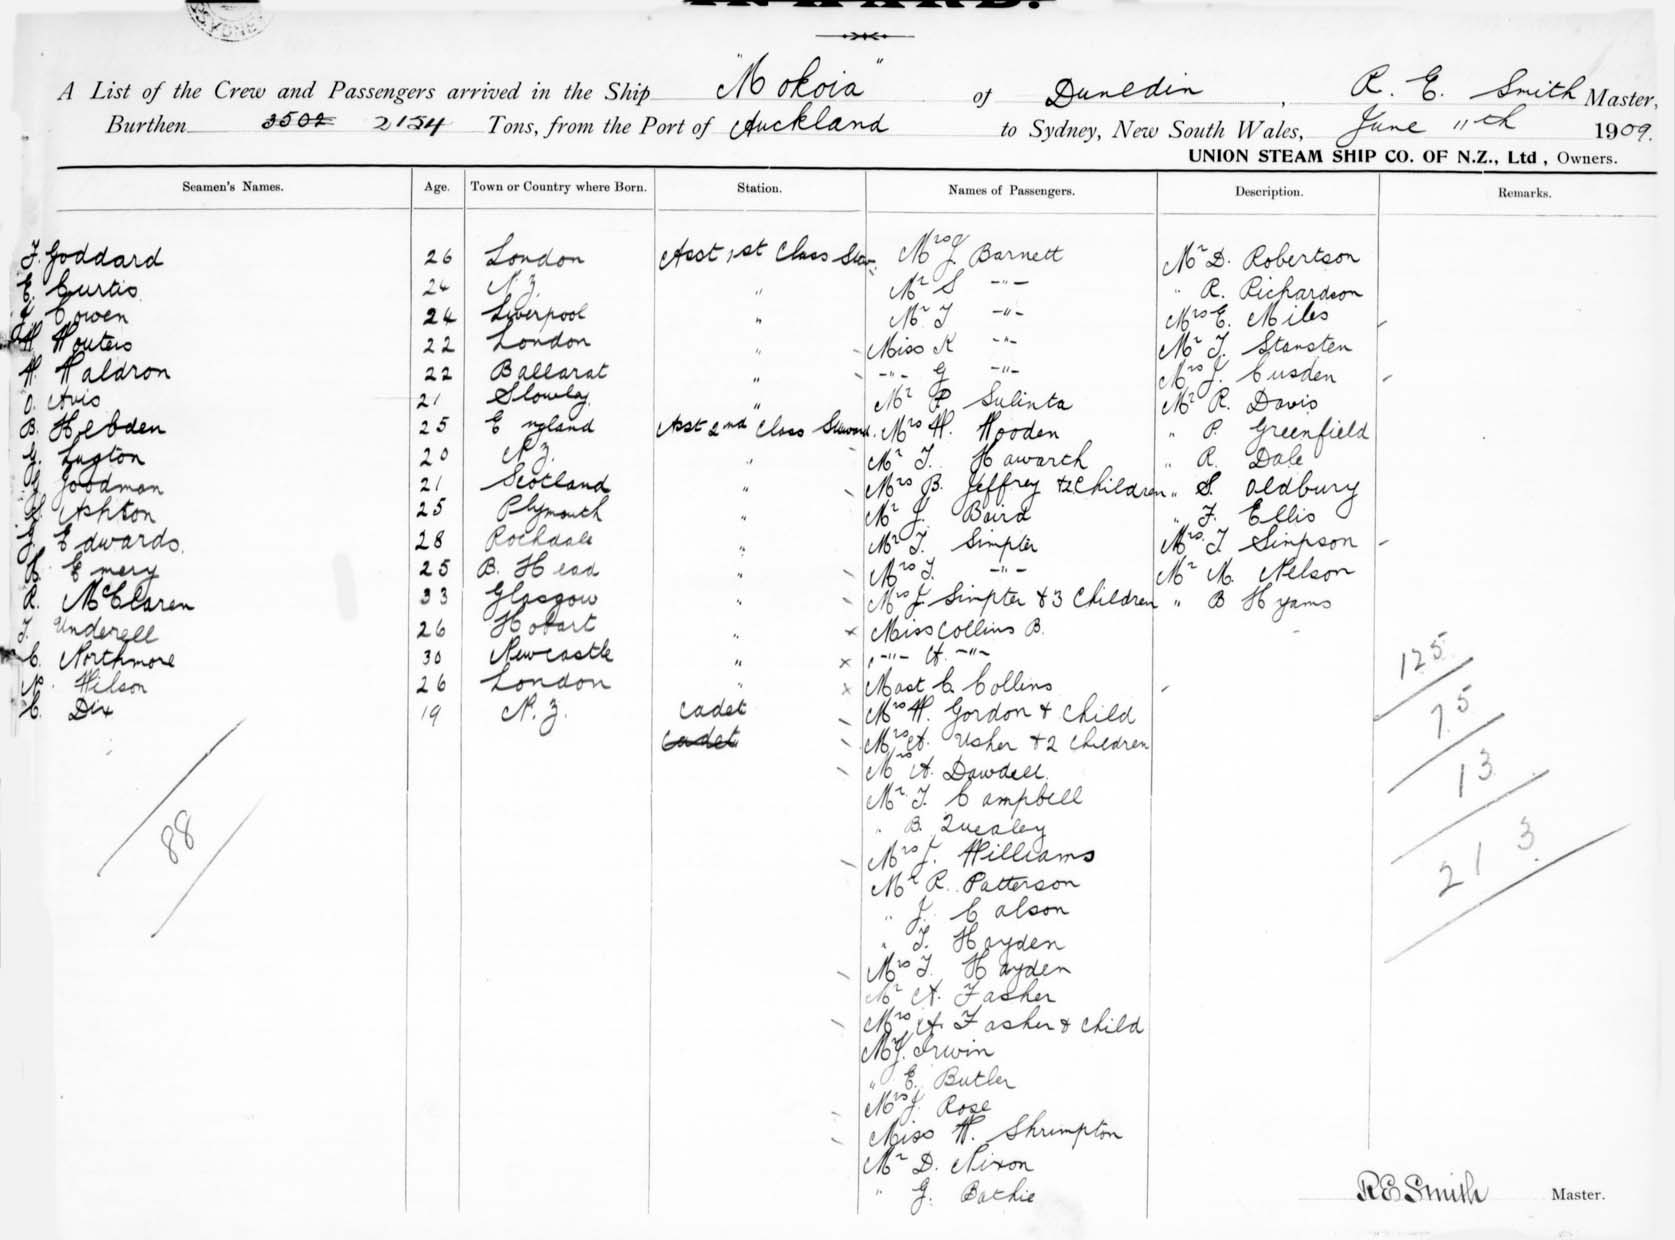 INWARD.
SYDNEY
A List of the Crew and Passengers arrived in the Ship "Mokoia" of Dunedin, R. E. Smith Master,
Burthen 3502 2154 Tons, from the Port of Auckland to Sydney, New South Wales, June 11th 1909.
UNION STEAM SHIP CO. OF N.Z., Ltd, Owners.
Seamen's Names. Age. Town or Country where Born. Station. Names of Passengers. Description. Remarks.
F. Goddard 26 London Asst 1st Class Stew. Mrs J. Barnett Mr D. Robertson
E. Curtis 24 N.Z. " Mr S -"- " R. Richardson
Cowen 24 Liverpool " Mr T -"- Mrs E. Miles
H Wouters 22 London " Miss K -"- Mr T. Stansten
W. Waldron 22 Ballarat " -"- G -"- Mrs J. Cusden
Avis 21 " Mr P Sulinta Mr R. Davis
B. Hebden 25 England Asst 2nd Class Steward. Mrs W. Wooden " P. Greenfield
G. Lugton 20 N.Z. " Mr T. Howarth " R. Dale
Goodman 21 Scotland " Mrs B. Jeffrey & 2 Children " S. Oldbury
Ashton 25 Plymouth " Mr J. Baird " F. Ellis
G. Edwards. 28 Rochdale " Mr T. Simpter Mrs. T Simpson
Emery 25 B. Head " Mrs T. -"- Mr M. Nelson
R. McClaren 33 Glasgow " Mrs J. Simpter & 3 Children " B Hyams
T. Underell 26 Hobart " x Miss Collins B.
C. Northmore 30 Newcastle " x -"- A. -"-
N. Wilson 26 London " x Mast C. Collins
C. Dix 19 N.Z. Cadet Mrs W. Gordon & Child
Cadet Mrs A. Usher & 2 Children
Mrs A. Dawdell.
Mr T. Campbell
" B. Quealey
Mrs J. Williams
Mr R. Patterson
" J. Calson
" T. Hayden
Mrs T. Hayden
Mr A. Fasher
Mrs A. Fasher & Child
Mr J. Irwin
" E. Butler
Mrs J. Rose
Miss W. Shrimpton
Mr D. Nixon
" G. Bathie
88
125
75
13
213
R E Smith Master.